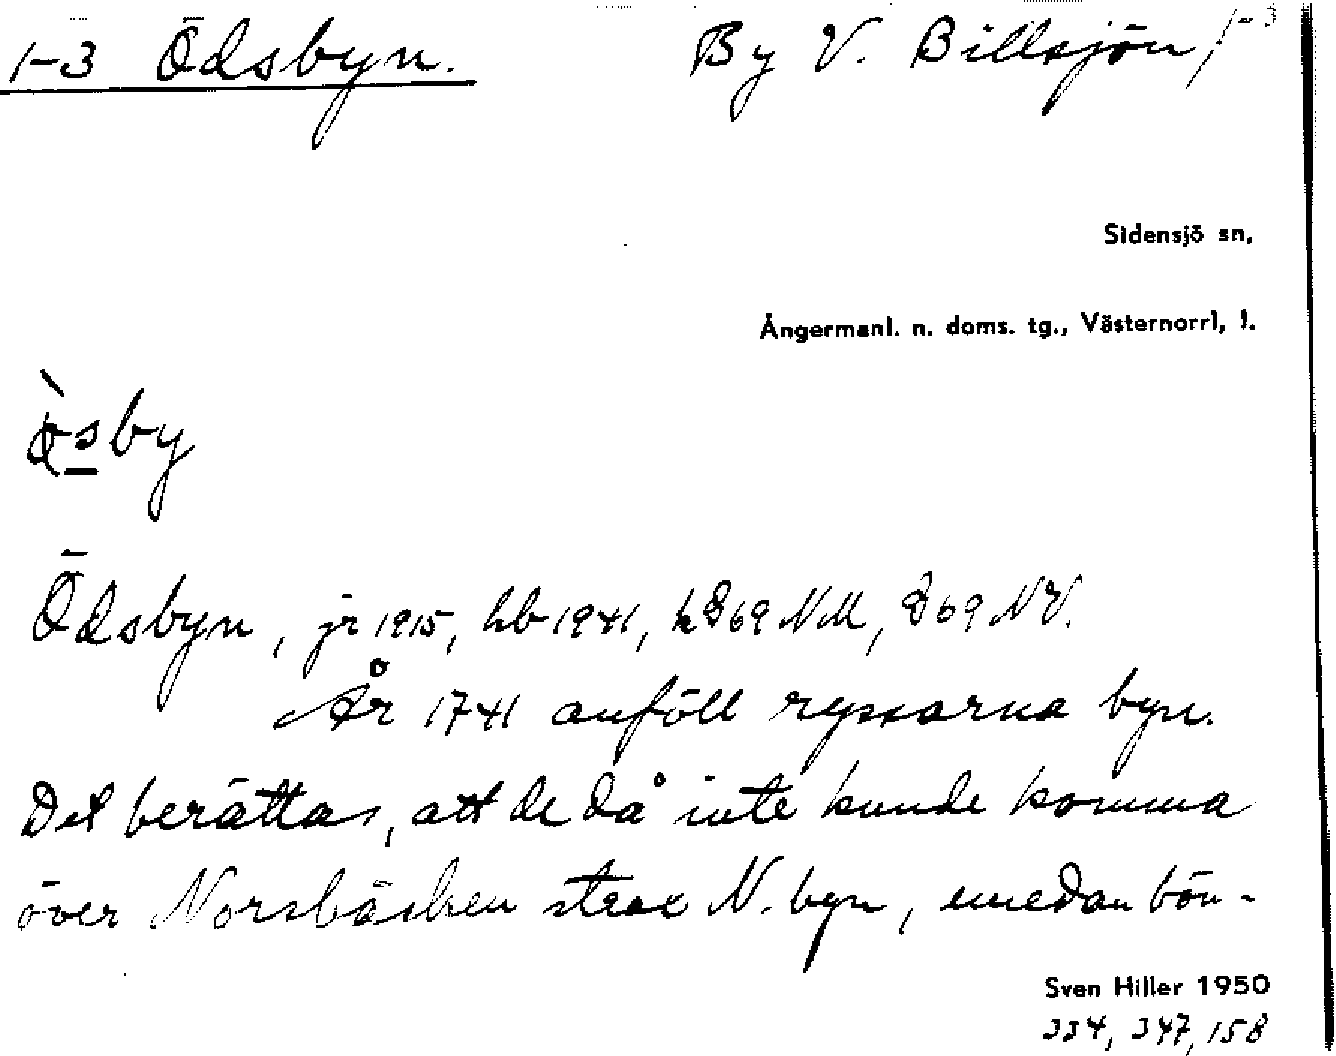 1-3 Ödsbyn. By V. Billsjön 1-3
Sidensjö sn,
Ångermanl. n. doms. tg., Västernorrl, l.
ö̀sby
Ödsbyn, jr 1915, hb 1941, k 869 NM, 869 NV.
År 1741 anföll ryssarna byn.
Det berättas, att de då inte kunde komma
över Norsbäcken strax N. byn, emedan bön-
Sven Hiller 1950
334, 347, 158